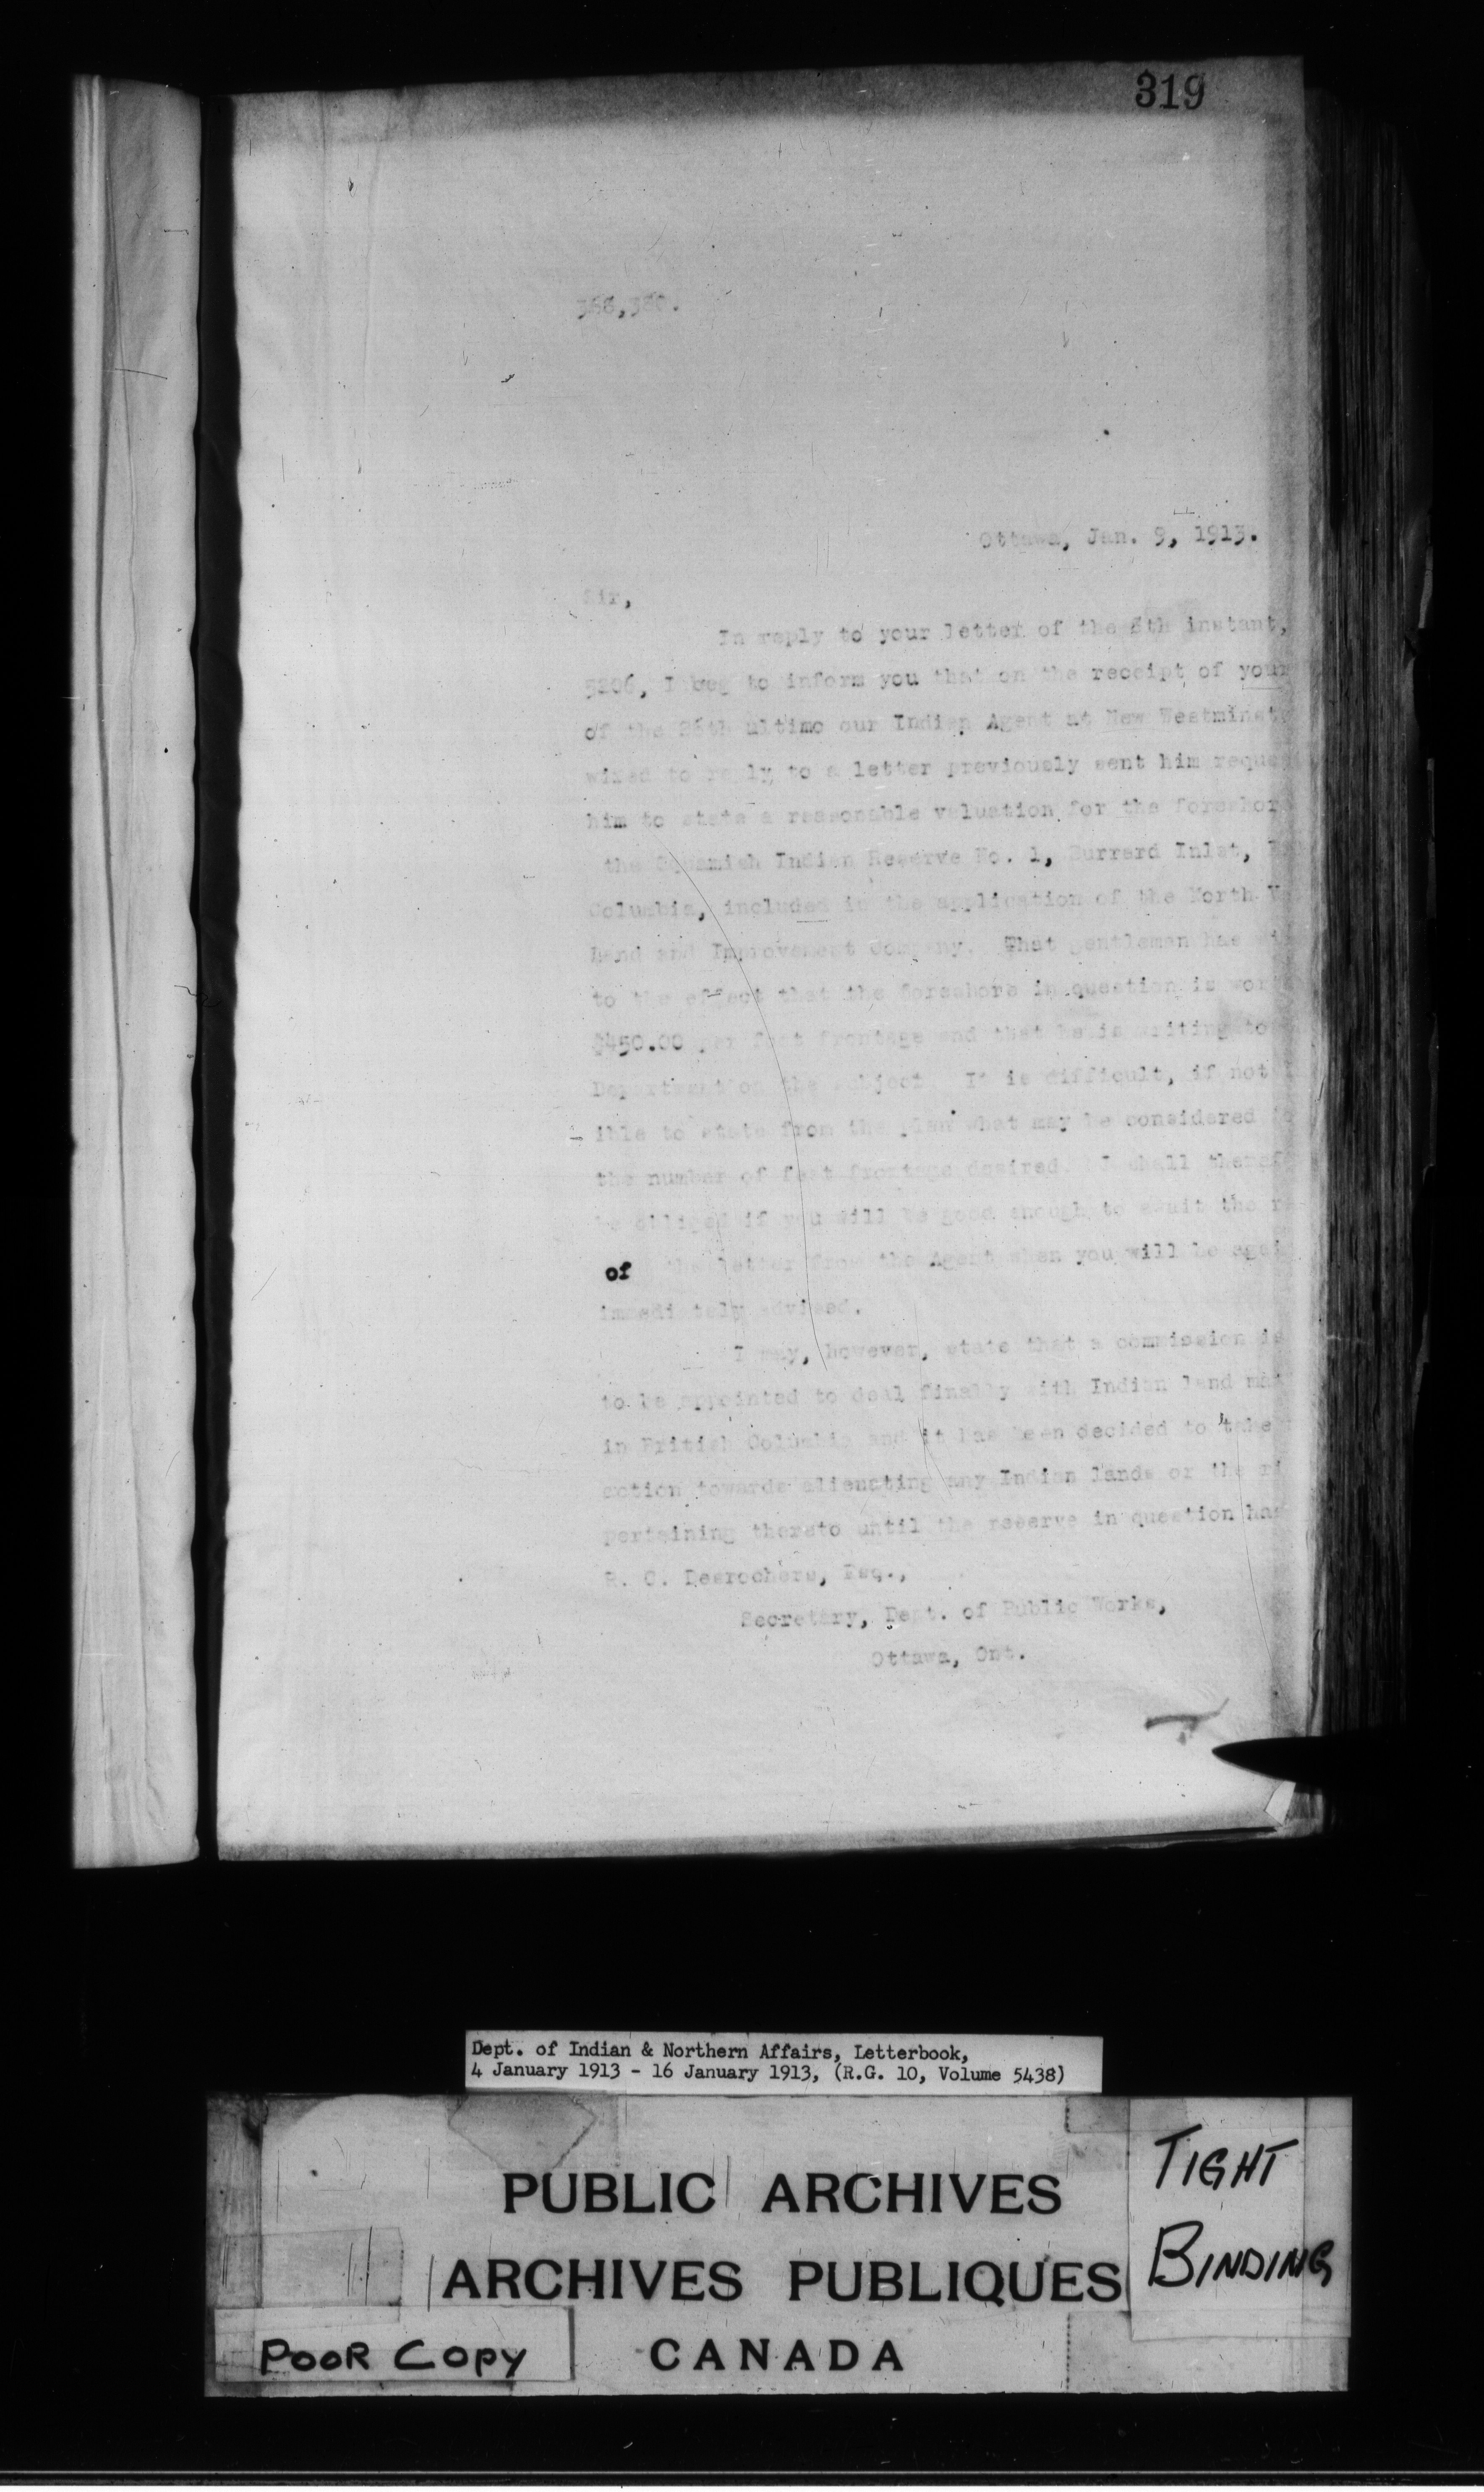 319
Ottawa, Jan. 9, 1913.
Sir,
In reply to your letter of the 8th instant,
5206, I beg to inform you that on the receipt of your
of the 26th ultimo our Indian Agent at New Westminst
wired to reply to a letter previously sent him reque
him to state a reasonable valuation for the foreshor
the Squamish Indian Reserve No. 1, Burrard Inlet,
Columbia, included in the application of the North V
Land and Improvement Company. That gentleman has wi
to the effect that the foreshore in question is wor
$450.00 per foot frontage and that he is writing to
Department on the subject. It is difficult, if not
ible to state from the plan what may be considered
the number of feet frontage desired. I shall theref
be obliged if you will be good enough to await the r
of the letter from the Agent when you will be agai
immediately advised.
I may, however, state that a commission is
to be appointed to deal finally with Indian land mat
in British Columbia and it has been decided to take
action towards alienating any Indian lands or the ri
pertaining thereto until the reserve in question has
R. C. Desrochers, Esq.,
Secretary, Dept. of Public Works,
Ottawa, Ont.
Dept. of Indian & Northern Affairs, Letterbook,
4 January 1913 - 16 January 1913, (R.G. 10, Volume 5438)
PUBLIC ARCHIVES
ARCHIVES PUBLIQUES
CANADA
TIGHT
BINDING
POOR COPY